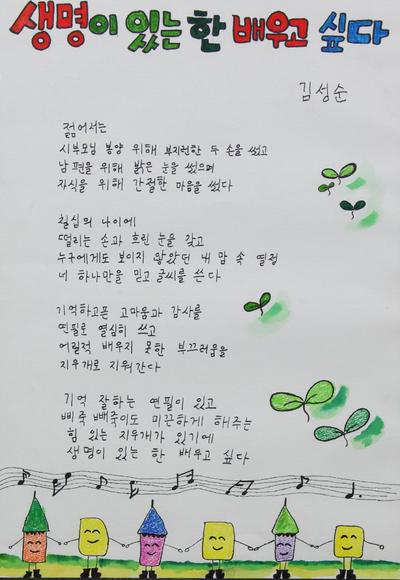 생명이 있는 한 배우고 싶다
김성순
젊어서는
시부모님 봉양 위해 부지런한 두 손을 썼고
남편을 위해 밝은 눈을 썼으며
자식을 위해 간절한 마음을 썼다
칠십의 나이에
떨리는 손과 흐린 눈을 갖고
누구에게도 보이지 않았던 내 맘 속 열정
너 하나만을 믿고 글씨를 쓴다
기억하고픈 고마움과 감사를
연필로 열심히 쓰고
어릴적 배우지 못한 부끄러움을
지우개로 지워간다
기억 잘하는 연필이 있고
삐죽 빼죽이도 미끈하게 해주는
힘 있는 지우개가 있기에
생명이 있는 한 배우고 싶다